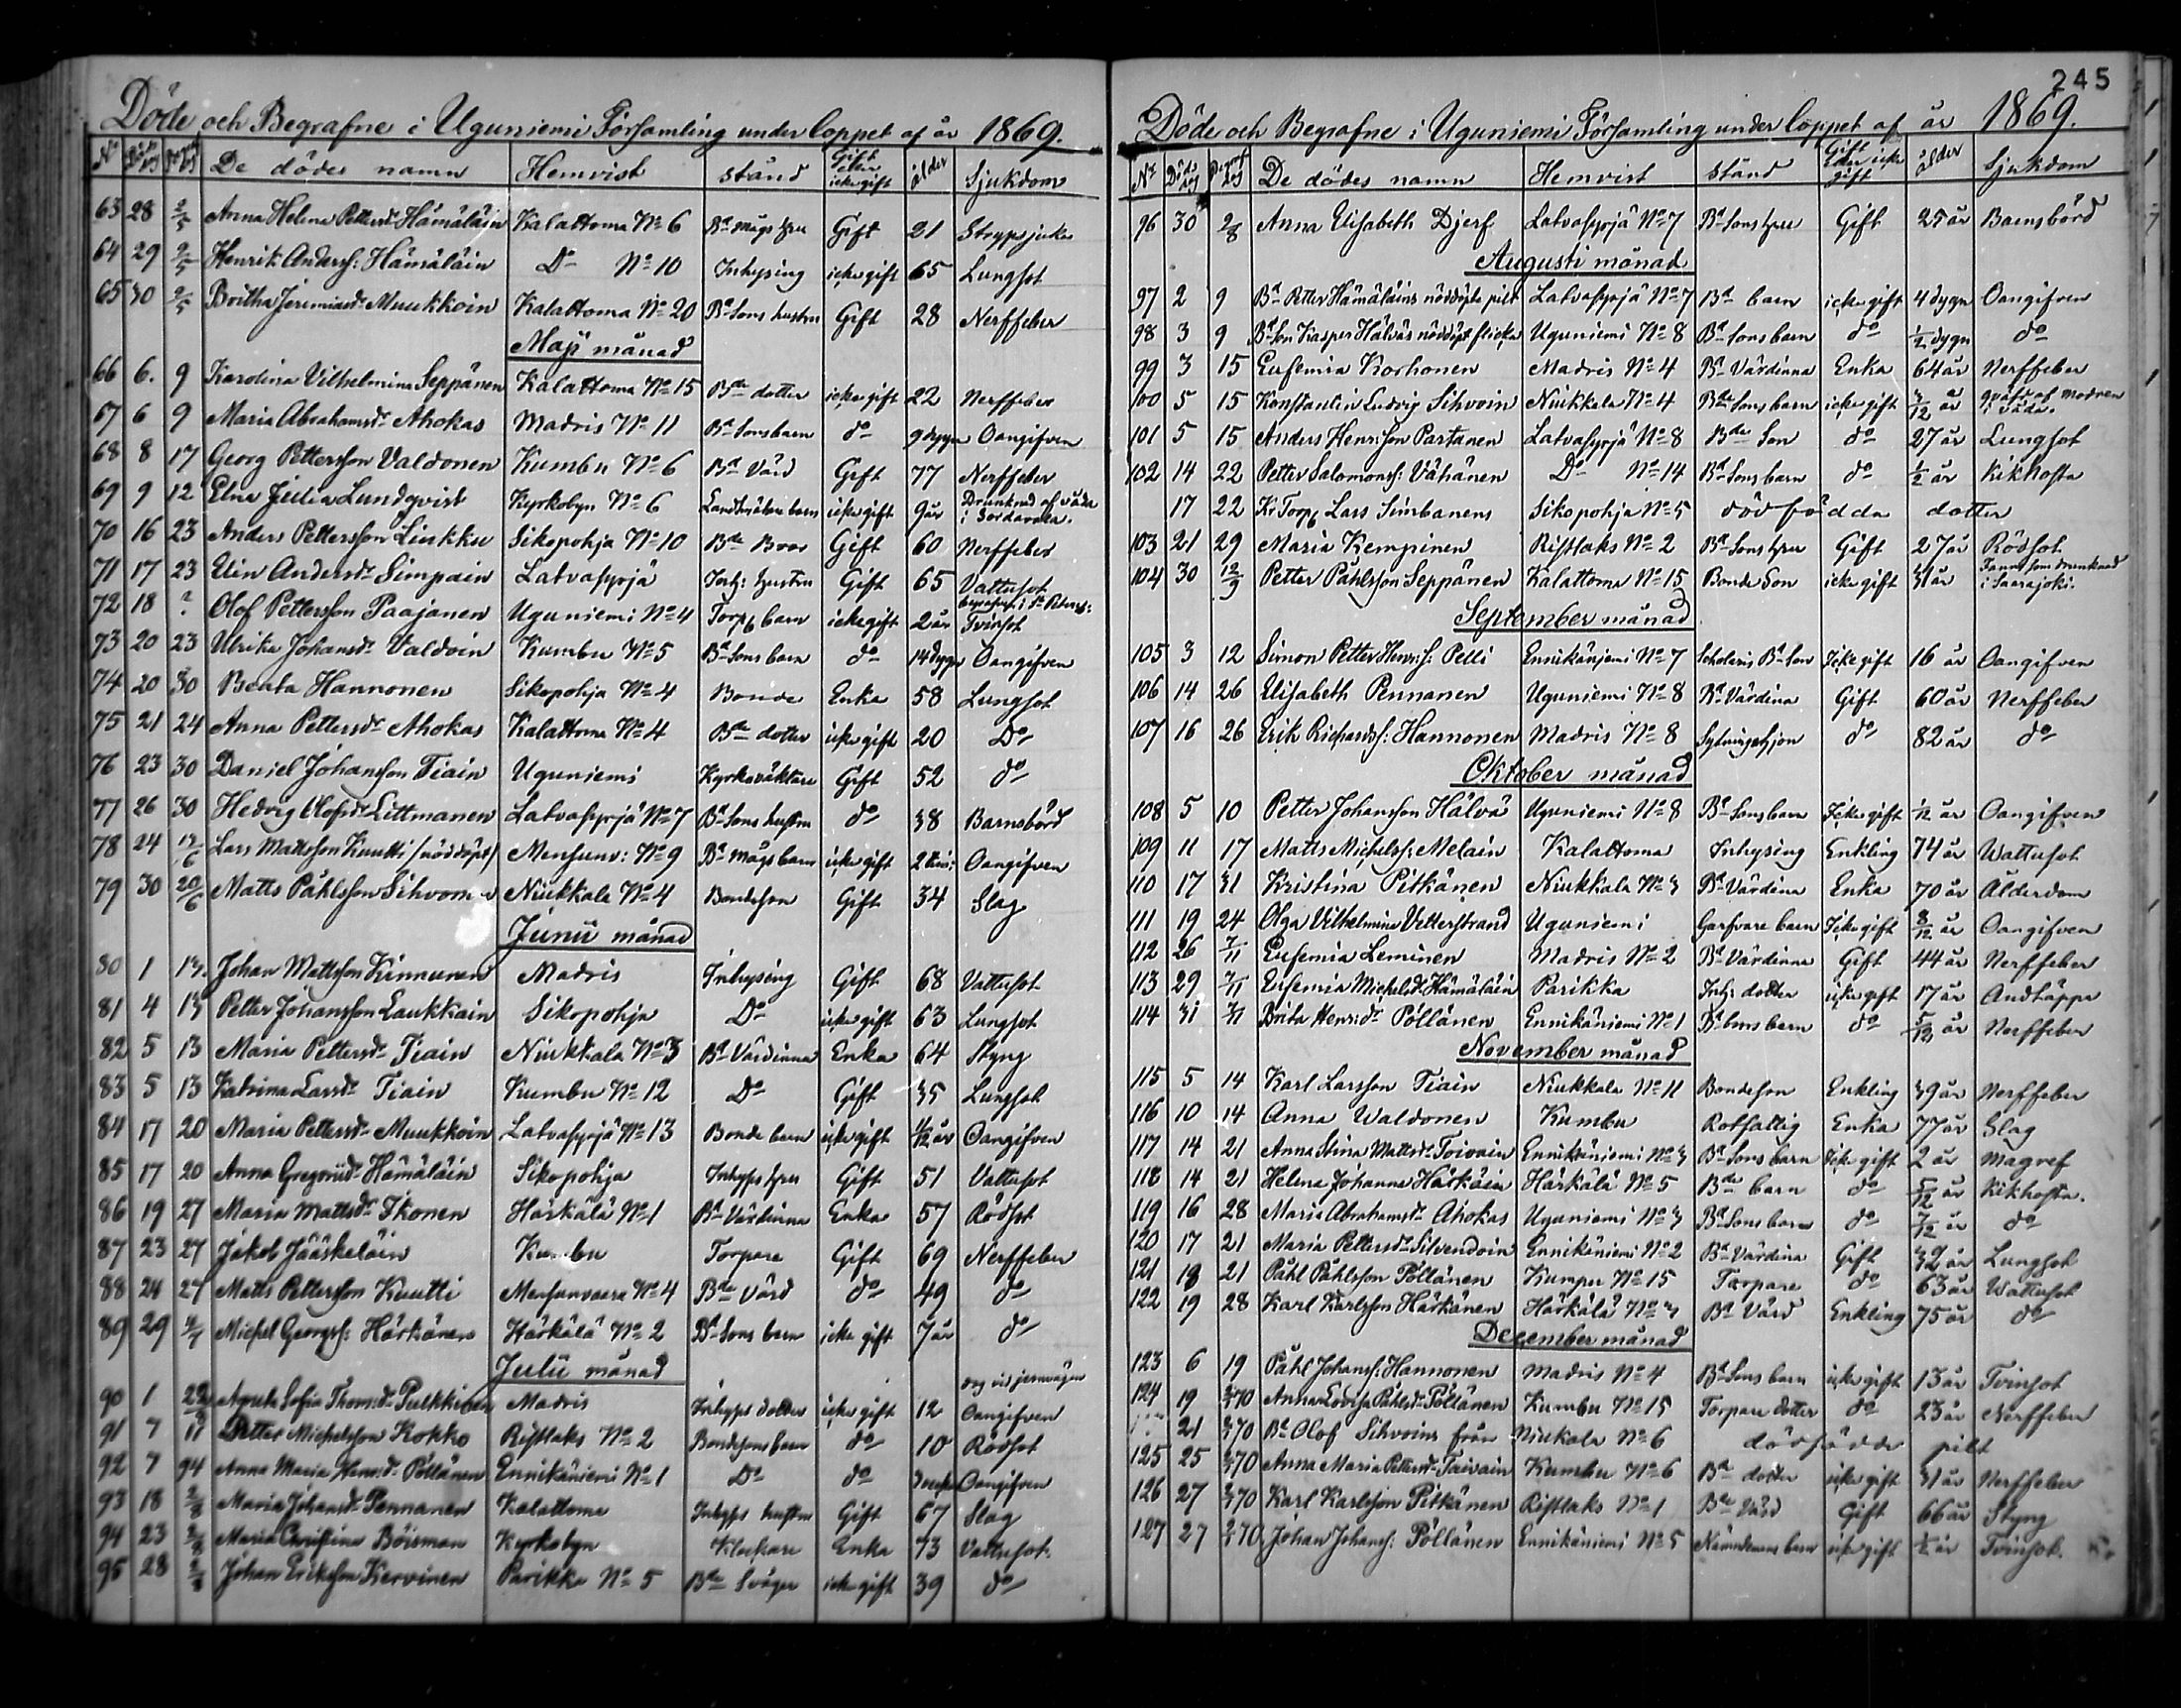 Döde och Begrafne i Uguniemi Församling under loppet af år 1869.
No Döds dag Begraf dag De dödes namn Hemvist stånd Gift eller icke gift ålder Sjukdom
63 28 2/5 Anna Helena Pettersdr Hämäläin Kalattoma No 6 Bd mågs hru Gift 21 Strypsjuka
64 29 2/5 Henrik Anderss: Hämäläin Do No 10 Inhysing icke gift 65 Lungsot
65 30 2/5 Britha Jeremiasdr Muukkoin Kalattoma No 20 Bd Sons hustru Gift 28 Nerffeber
Maji månad
66 6. 9 Karolina Vilhelmina Seppänen Kalattoma No 15 Bde dotter icke gift 22 Nerffeber
67 6 9 Maria Abrahamsdr Ahokas Madris No 11 Bd Sonsbarn do 9 dygn Oangifven
68 8 17 Georg Pettersson Valdonen Kumbu No 6 Bd Värd Gift 77 Nerffeber
69 9 12 Elna Julia Lundqvist Kyrkobyn No 6 Landtmätare barn icke gift 9 år Drunknad af våda i Sordavala.
70 16 23 Anders Pettersson Liukku Sikopohja No 10 Bde Broor Gift 60 Nerffeber
71 17 23 Elin Andersdr Simpain Latvasyrjä Inh: hustru Gift 65 Vattusot
72 18 ? Olof Pettersson Paajanen Uguniemi No 4 Torp barn icke gift 2 år begrafven i St Peters: Tvinsot
73 20 23 Ulrika Johansdr Valdoin Kumbu No 5 Bd Sons barn do 14 dygn Oangifven
74 20 30 Beata Hannonen Sikopohja No 4 Bonde Enka 58 Lungsot
75 21 24 Anna Pettersdr Ahokas Kalattoma No 4 Bde dotter icke gift 20 Do
76 23 30 Daniel Johansson Tiain Uguniemi Kyrkoväktare Gift 52 do
77 26 30 Hedvig Olofsdr Littmanen Latvasyrjä No 7 Bd Sons hustru do 38 Barnsbörd
78 24 13/6 Lars Mattsson Kuutti /nöddöpt/ Mensunv: No 9 Bd Mågs barn icke gift 2 tim: Oangifven
79 30 20/6 Matts Påhlsson Sihvonen Niukkala No 4 Bondeson Gift 34 Slag
Junii månad
80 1 13. Johan Mattsson Kinnunen Madris Inhysing Gift 68 Vattusot
81 4 13 Petter Johansson Laukkain Sikopohja Do icke gift 63 Lungsot
82 5 13 Maria Pettersdr Tiain Niukkala No 3 Bd Värdinna Enka 64 Styng
83 5 13 Katrina Larsdr Tiain Kumbu No 12 Do Gift 35 Lungsot
84 17 20 Maria Pettersdr Muukkoin Latvasyrjä No 13 Bonde barn icke gift 1/12 år Oangifven
85 17 20 Anna Gregoriidr Hämäläin Sikopohja Inhyss hru Gift 51 Vattusot
86 19 27 Maria Mattsdr Ikonen Härkälä No 1 Bd Värdinna Enka 57 Rödsot
87 23 27 Jakob Jääskeläin Kumbu Torpare Gift 69 Nerffeber
88 24 27 Matts Pettersson Kuutti Mensunvaara No 4 Bde Värd do 49 do
89 29 4/7 Michel Georgss: Härkänen Härkälä No 2 Bd Sons barn icke gift 7 år do
Julii månad
90 1 Agneta Sofia Thomsdr Pulkkinen Madris Inhyss dotter icke gift 12 dog vid jernvägen Oangifven
91 7 11 Petter Michelsson Kokko Ristlaks No 2 Bondesons barn do 10 Rödsot
92 7 Anna Maria Henrsdr Pöllänen Ennikäniemi No 1 Do do Oangifven
93 18 2/8 Maria Johansdr Pennanen Kalattoma Inhyss hustru Gift 67 Slag
94 23 2/8 Maria Christina Böisman Kyrkobyn Klockare Enka 73 Vattusot
95 28 2/8 Johan Eriksson Kervinen Parikka No 5 Bde Svåger icke gift 39 do
245
Döde och Begrafne i Uguniemi Församling under loppet af år 1869.
No Döds dag Begraf dag De dödes namn Hemvist stånd Gift eller icke gift ålder Sjukdom
96 30 2/8 Anna Elisabeth Djerf Latvasyrjä No 7 Bd Sons hru Gift 25 år Barnsbörd
Augusti månad
97 2 9 Bd Petter Hämäläins nöddöpta pilt Latvasyrjä No 7 Bd barn icke gift 4 dygn Oangifven
98 3 9 Bd Son Kasper Hälväs nöddöpt flicka Uguniemi No 8 Bd Sons barn do 1/2 dygn do
99 3 15 Eufemia Korhonen Madris No 4 Bd Värdinna Enka 64 år Nerffeber
100 5 15 Konstantin Ludvig Sihvoin Niukkala No 4 Bde Sons barn icke gift 3/12 år qväfd af modren i våda.
101 5 15 Anders Henrsson Partanen Latvasyrjä No 8 Bde Son do 27 år Lungsot
102 14 22 Petter Salomonss: Vähänen Do No 14 Bd Sons barn do 1/2 år Kikhosta
17 22 Kr Torp Lars Simbanens Sikopohja No 5 död födda dotter
103 21 29 Maria Kempinen Ristlaks No 2 Bd Sons hru Gift 27 år Rödsot
104 30 12/9 Petter Påhlsson Seppänen Kalattoma No 15 Bonde Son icke gift 31 år Fanns som drunknad i Saarajoki.
September månad
105 3 12 Simon Petter Henrss: Pelli Ennikänjemi No 7 Scholaris Bd Son Icke gift 16 år Oangifven
106 14 26 Elisabeth Pennanen Uguniemi No 8 Bd Värdina Gift 60 år Nerffeber
107 16 26 Erik Richardss: Hannonen Madris No 8 Sytningshjon do 82 år do
Oktober månad
108 5 10 Petter Johansson Hälvä Uguniemi No 8 Bd Sons barn Icke gift 1/12 år Oangifven
109 11 17 Matts Michelss: Melain Kalattoma Inhysing Enkling 74 år Wattusot
110 17 31 Kristina Pitkänen Niukkala No 3 Bd Värdina Enka 70 år Ålderdom
111 19 24 Olga Vilhelmina Vetterstrand Uguniemi Garfvare barn Icke gift 8/12 år Oangifven
112 26 7/11 Eufemia Leminen Madris No 2 Bd Värdinna Gift 44 år Nerffeber
113 29 7/11 Eufemia Michelsdr Hämäläin Parikka Inh: dotter icke gift 17 år Andtäppa
114 31 7/11 Brita Henrsdr Pöllänen Ennikäniemi No 1 Bd Sons barn do 5/12 år Nerffeber
November månad
115 5 14 Karl Larsson Tiain Niukkala No 11 Bondeson Enkling 39 år Nerffeber
116 10 14 Anna Waldonen Kumbu Rotfattig Enka 77 år Slag
117 14 21 Anna Stina Mattsdr Toivain Ennikäniemi No 3 Bd Sons barn Icke gift 2 år Magref
118 14 21 Helena Johanna Härkäin Härkälä No 5 Bde barn do 5/12 år Kikhosta.
119 16 28 Maria Abrahamsdr Ahokas Uguniemi No 3 Bd Sons barn do 7/12 år do
120 17 21 Maria Pettersdr Silvendoin Ennikäniemi No 2 Bd Värdina Gift 32 år Lungsot
121 18 21 Påhl Påhlsson Pöllänen Kumpu No 15 Torpare do 63 år Wattusot
122 19 28 Karl Karlsson Härkänen Härkälä No 3 Bd Värd Enkling 75 år do
December månad
123 6 19 Påhl Johanss: Hannonen Madris No 4 Bd Sons barn icke gift 13 år Tvinsot
124 19 Anna Lovisa Påhlsdr Pöllänen Kumbu No 15 Torpare dotter do 23 år Nerffeber
21 Bd Olof Sihvoins från Niukala No 6 dödfödde pilt
125 25 Anna Maria Pettersdr Taivain Kumbu No 6 Bd dotter icke gift 31 år Nerffeber
126 27 Karl Karlsson Pitkänen Ristlaks No 1 Bde Värd Gift 66 år Styng
127 27 Johan Johanss: Pöllänen Ennikäniemi No 5 Nämndemans barn icke gift 1/2 år Tvinsot.